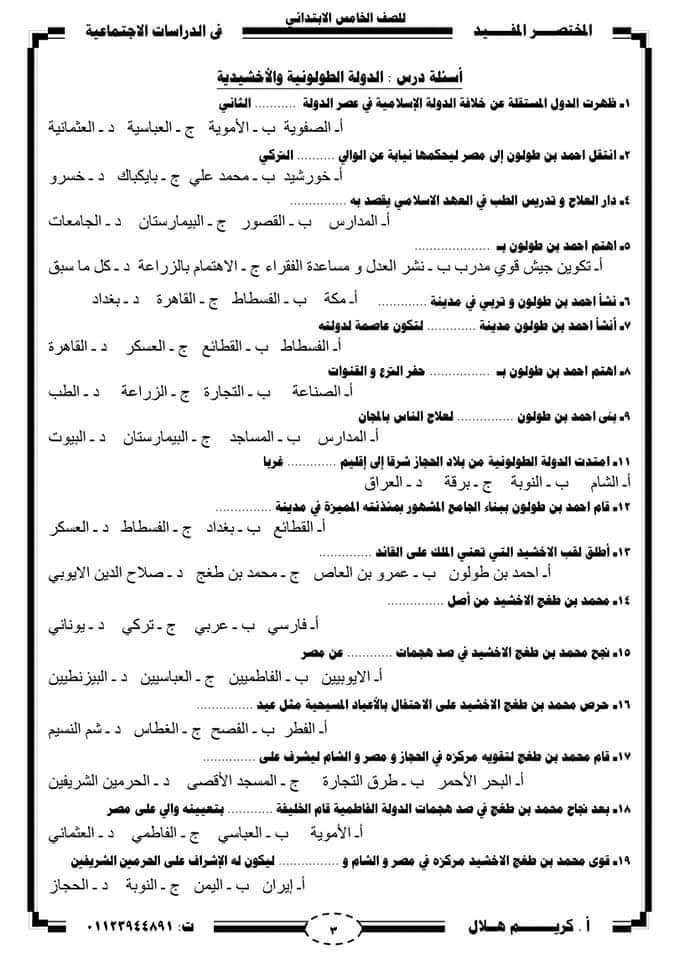 المختصر المفيد
للصف الخامس الابتدائي
فى الدراسات الاجتماعية
أسئلة درس : الدولة الطولونية والأخشيدية
١ـ ظهرت الدول المستقلة عن خلافة الدولة الإسلامية في عصر الدولة ........... الثاني
أـ الصفوية ب ـ الأموية ج ـ العباسية د ـ العثمانية
٢ـ انتقل احمد بن طولون إلى مصر ليحكمها نيابة عن الوالي .......... التركي
أـ خورشيد ب ـ محمد علي ج ـ بايكباك د ـ خسرو
٤ـ دار العلاج و تدريس الطب في العهد الاسلامي يقصد به ...............
أـ المدارس ب ـ القصور ج ـ البيمارستان د ـ الجامعات
٥ـ اهتم احمد بن طولون بـ ....................
أـ تكوين جيش قوي مدرب ب ـ نشر العدل و مساعدة الفقراء ج ـ الاهتمام بالزراعة د ـ كل ما سبق
٦ـ نشأ احمد بن طولون و تربي في مدينة .............
أـ مكة ب ـ الفسطاط ج ـ القاهرة د ـ بغداد
٧ـ أنشأ احمد بن طولون مدينة ............. لتكون عاصمة لدولته
أـ الفسطاط ب ـ القطائع ج ـ العسكر د ـ القاهرة
٨ـ اهتم احمد بن طولون بـ ................ حفر الترع و القنوات
أـ الصناعة ب ـ التجارة ج ـ الزراعة د ـ الطب
٩ـ بنى احمد بن طولون ............... لعلاج الناس بالمجان
أـ المدارس ب ـ المساجد ج ـ البيمارستان د ـ البيوت
١١ـ امتدت الدولة الطولونية من بلاد الحجاز شرقا إلى إقليم ............. غربا
أـ الشام ب ـ النوبة ج ـ برقة د ـ العراق
١٢ـ قام احمد بن طولون ببناء الجامع المشهور بمئذنته المميزة في مدينة ...............
أـ القطائع ب ـ بغداد ج ـ الفسطاط د ـ العسكر
١٣ـ أطلق لقب الاخشيد التي تعني الملك على القائد ..............
أـ احمد بن طولون ب ـ عمرو بن العاص ج ـ محمد بن طغج د ـ صلاح الدين الايوبي
١٤ـ محمد بن طغج الاخشيد من أصل ...............
أـ فارسي ب ـ عربي ج ـ تركي د ـ يوناني
١٥ـ نجح محمد بن طغج الاخشيد في صد هجمات ............ عن مصر
أـ الايوبيين ب ـ الفاطميين ج ـ العباسيين د ـ البيزنطيين
١٦ـ حرص محمد بن طغج الاخشيد على الاحتفال بالأعياد المسيحية مثل عيد ...............
أـ الفطر ب ـ الفصح ج ـ الغطاس د ـ شم النسيم
١٧ـ قام محمد بن طغج لتقويه مركزه في الحجاز و مصر و الشام ليشرف على ..............
أـ البحر الأحمر ب ـ طرق التجارة ج ـ المسجد الأقصى د ـ الحرمين الشريفين
١٨ـ بعد نجاح محمد بن طغج في صد هجمات الدولة الفاطمية قام الخليفة ............ بتعيينه والي على مصر
أـ الأموية ب ـ العباسي ج ـ الفاطمي د ـ العثماني
١٩ـ قوى محمد بن طغج الاخشيد مركزه في مصر و الشام و ................ ليكون له الإشراف على الحرمين الشريفين
أـ إيران ب ـ اليمن ج ـ النوبة د ـ الحجاز
أ . كريم هلال
٣
ت: ٠١١٢٣٩٤٤٨٩١